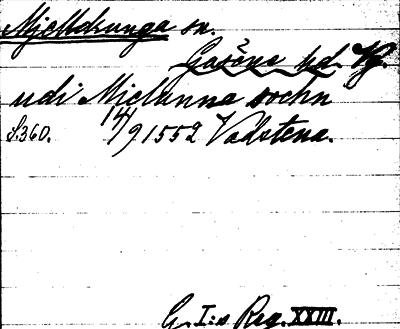 Mjelldrunga sn.
Gäsene hd. Vg.
udi Mielunna sochn
S. 360. 14/9 1552 Vadstena.
G. I:s Reg. XXIII.